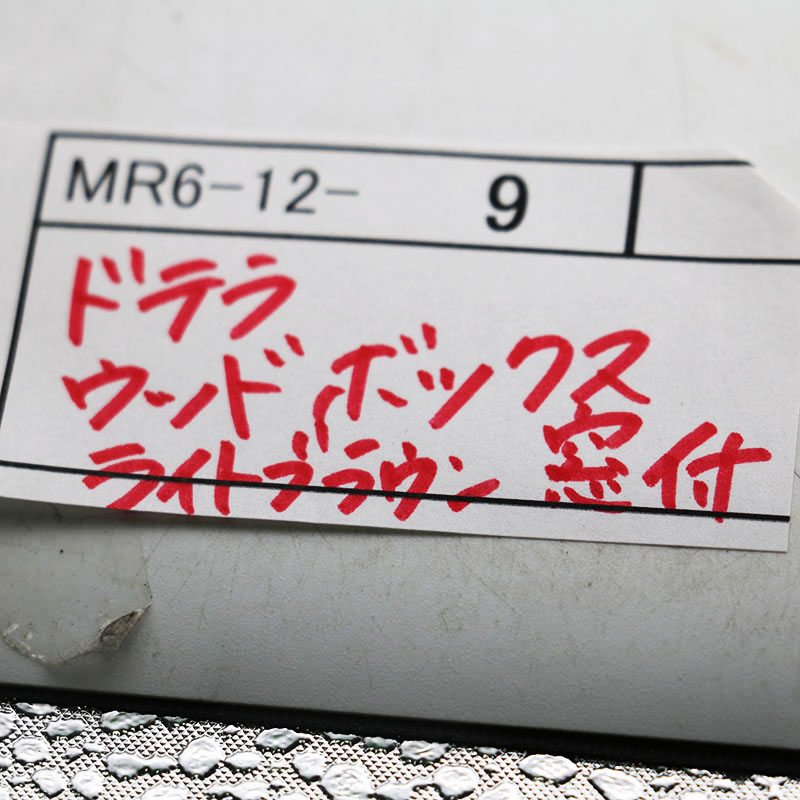 MR6-12- 9
ドテラ
ウッド ボックス
ライトブラウン 窓付